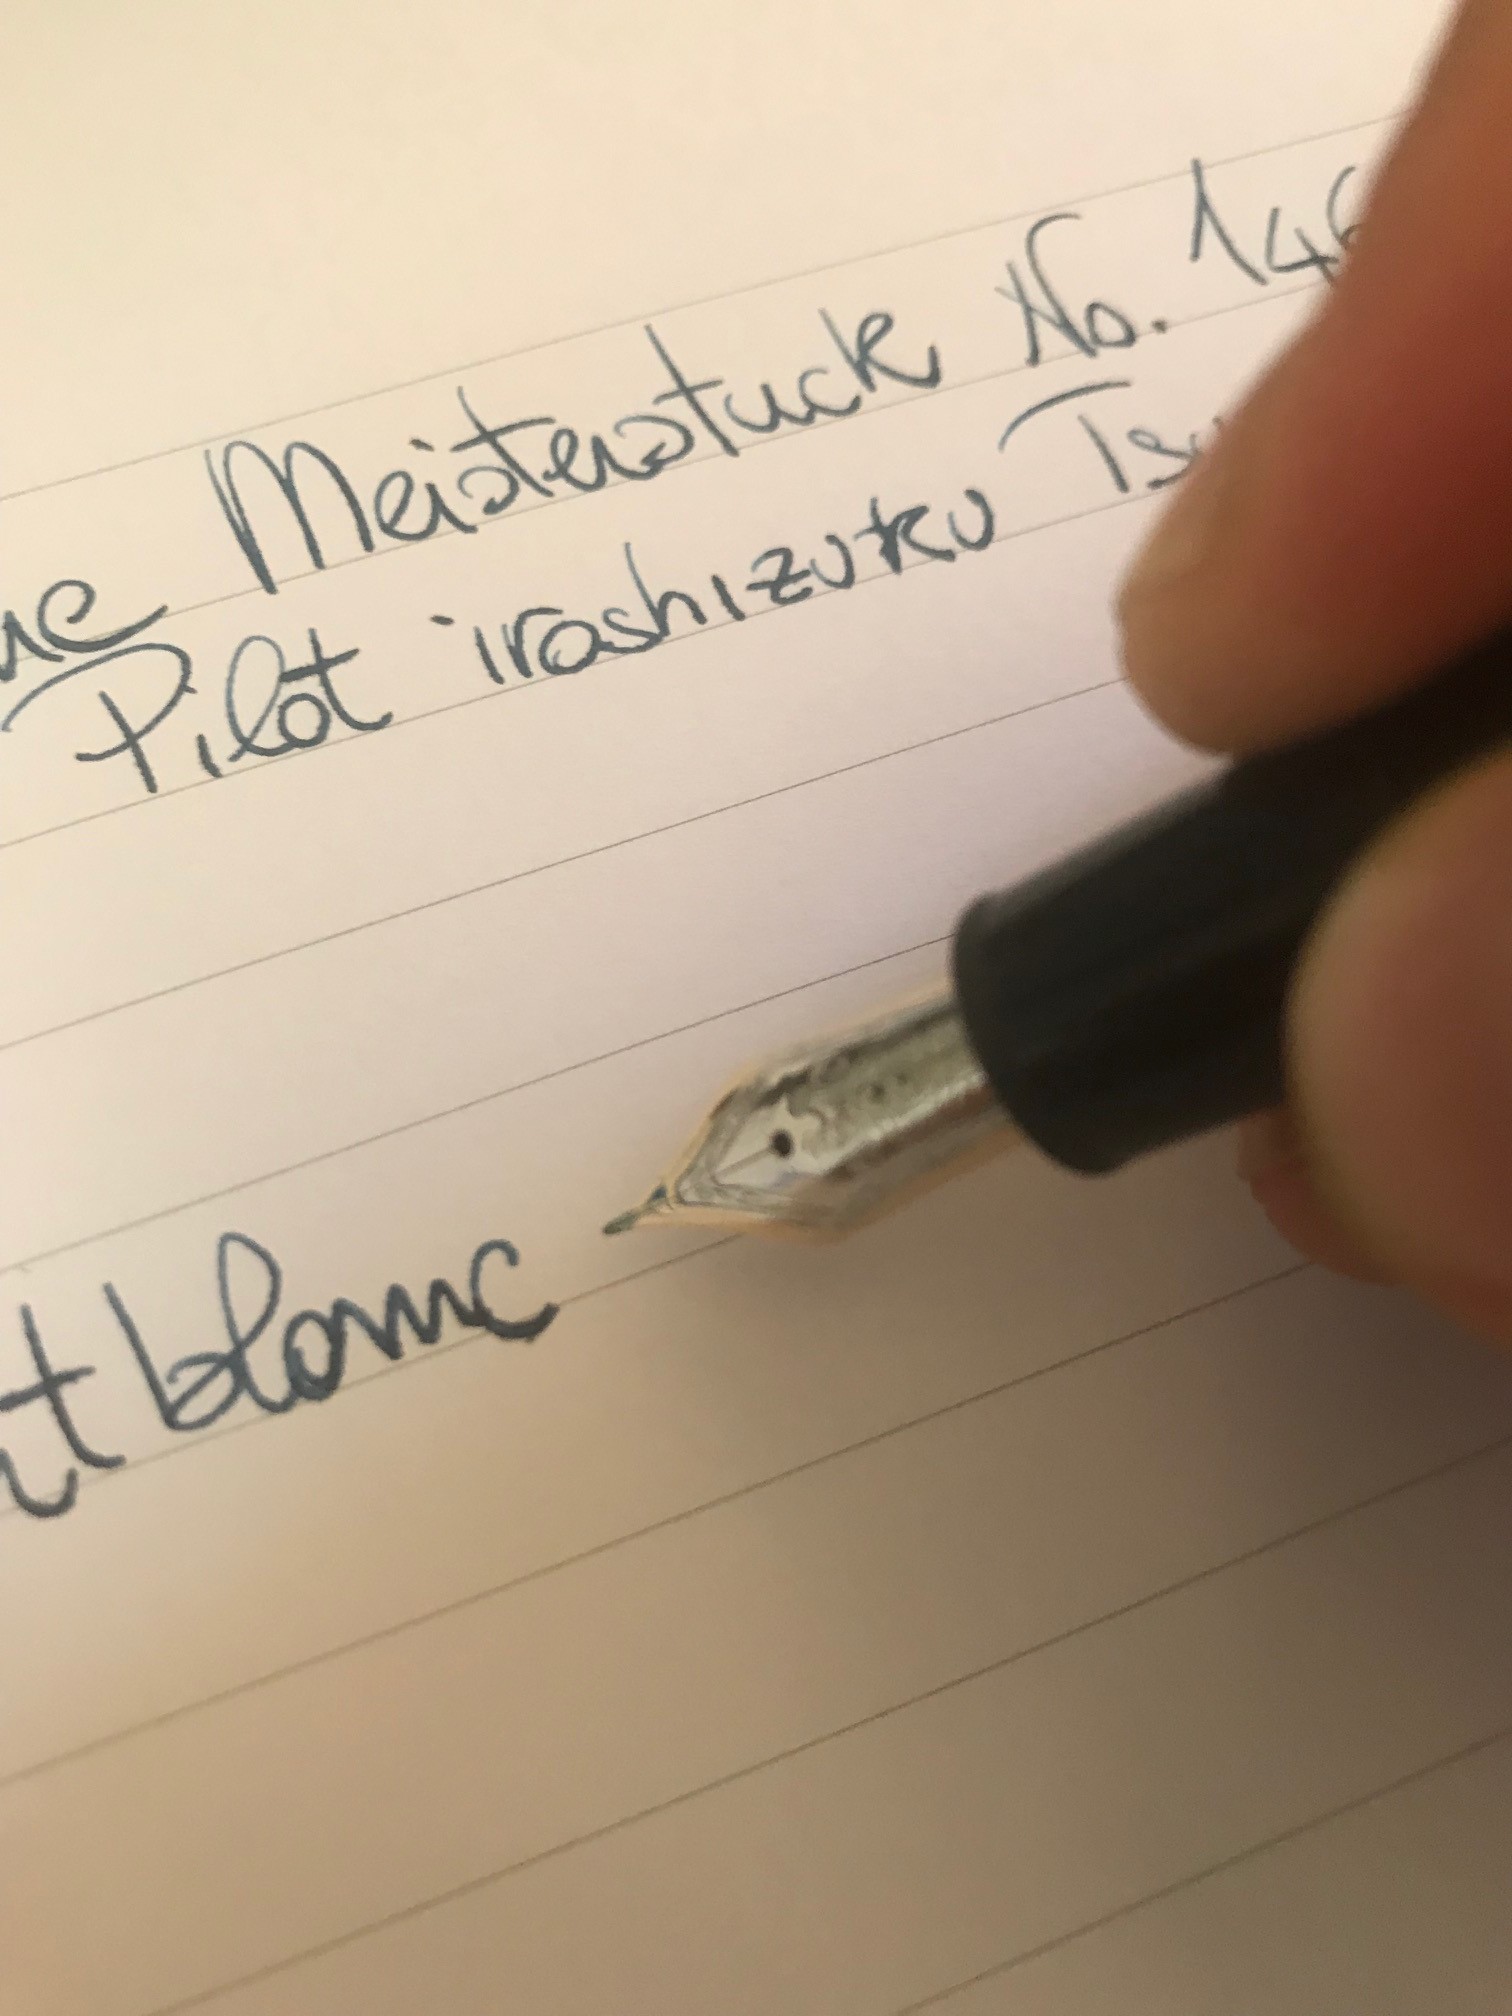 Meisterstuck No. 146
Pilot irashizuku
tblanc